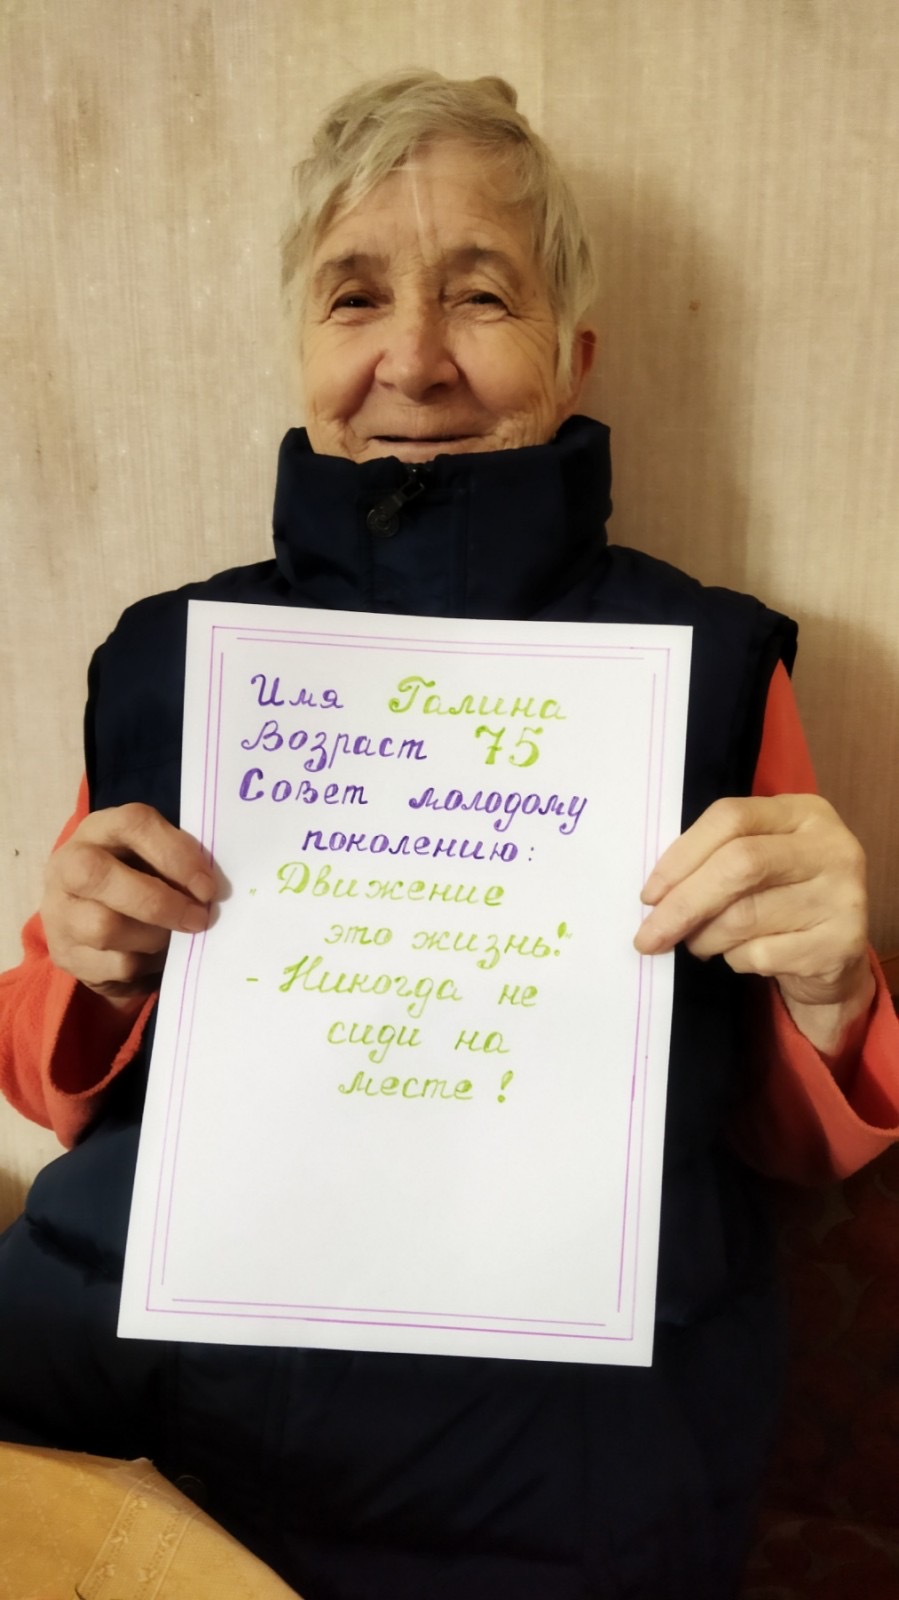 Имя Галина
Возраст 75
Совет молодому
поколению:
„Движение
это жизнь!"
- Никогда не
сиди на
месте!